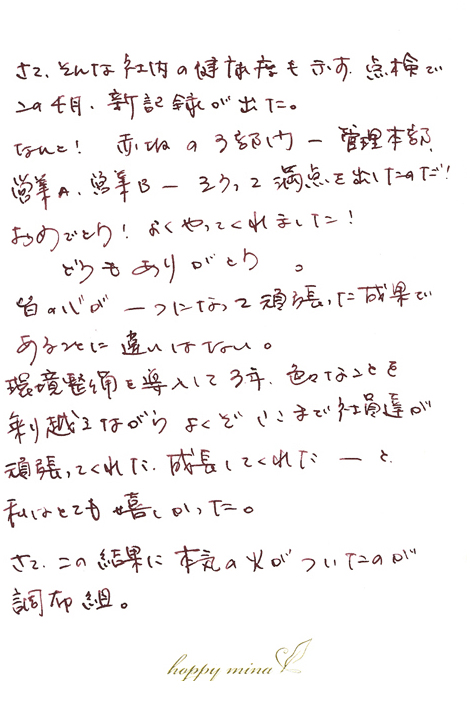 さて、そんな社内の健康度も示す点検で
この4月、新記録が出た。
なんと! 赤羽の3部門 ー 管理本部、
営業A、営業B ー そろって満点を出したのだ!
おめでとう! よくやってくれました!
どうもありがとう。
皆の心が一つになって頑張った成果で
あることに違いはない。
環境整備を導入して3年、色々なことを
乗り越えながらよくぞここまで社員達が
頑張ってくれた、成長してくれた ー と
私はとても嬉しかった。
さて、この結果に本気の火がついたのが
調布組。
happy mina